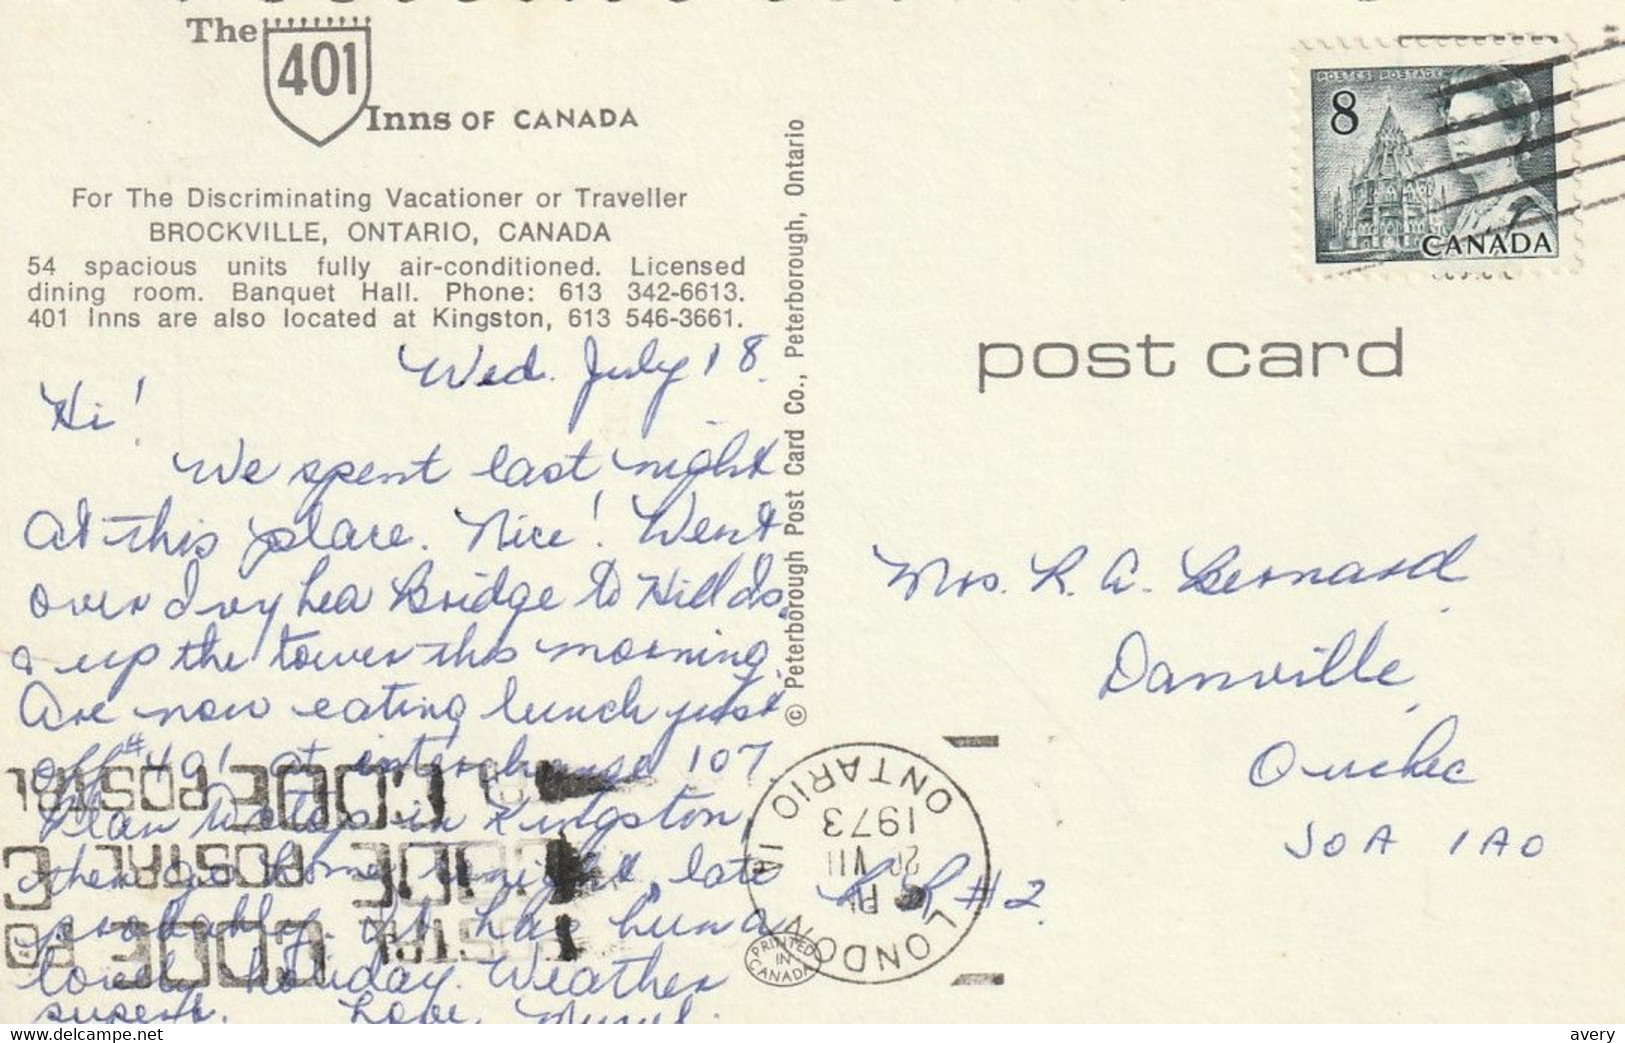 The 401 Inns OF CANADA
For The Discriminating Vacationer or Traveller
BROCKVILLE, ONTARIO, CANADA
54 spacious units fully air-conditioned. Licensed
dining room. Banquet Hall. Phone: 613 342-6613.
401 Inns are also located at Kingston, 613 546-3661.
Wed. July 18.
Hi!
We spent last night
At this place. Nice! Went
over Ivy Lea Bridge to Hill Is.
& up the tower this morning.
Are now eating lunch just
off #401 at interchange 107.
Plan to stop in Kingston,
then go home tonight, late
probably. It has been a
lovely holiday. Weather
superb. Love, Muriel.
© Peterborough Post Card Co., Peterborough, Ontario
POSTES POSTAGE
8
CANADA
post card
Mrs. R. A. Bernard
Danville,
Quebec
J0A 1A0
R R #2.
LONDON
ONTARIO
PM
VII
1973
CODE POSTAL
CODE POSTAL C
POSTAL CODE PO
PRINTED
IN
CANADA
www.delcampe.net
avery